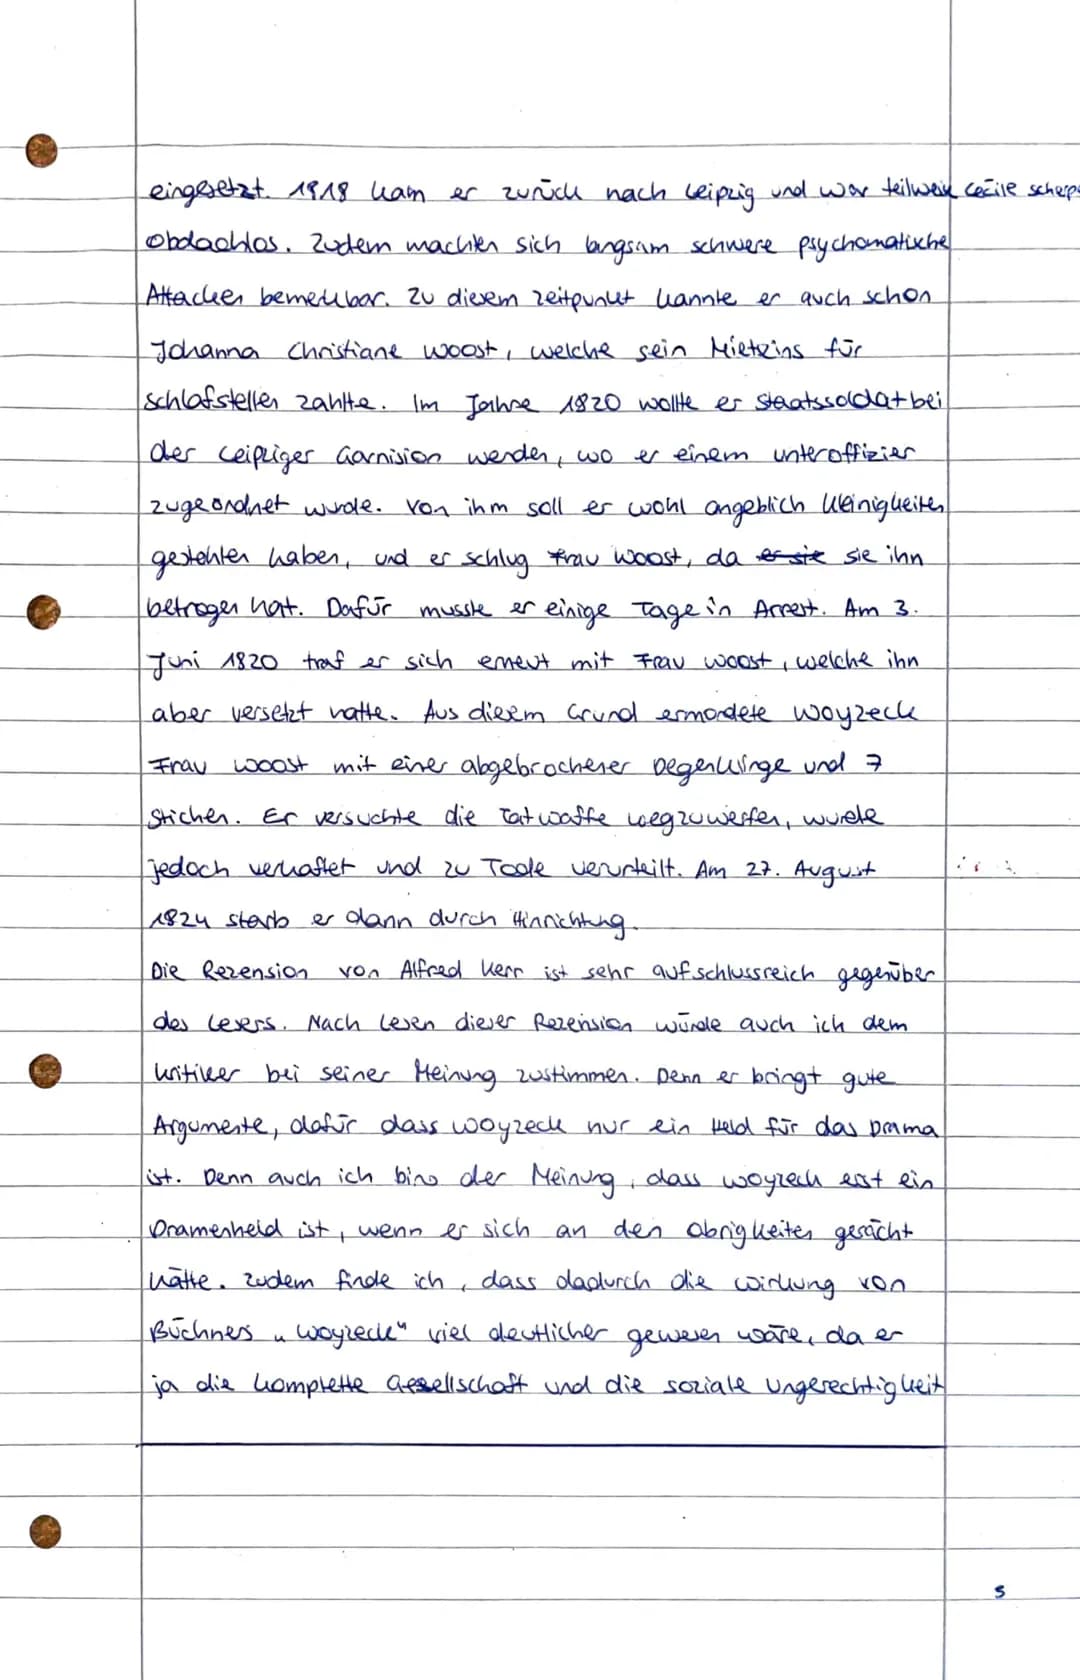 eingesetzt. 1918 kam er zurück nach Leipzig und war teilweise Cecile Scherp
Obdachlos. Zudem machten sich langsam schwere psychomatische
Attacken bemerkbar. Zu diesem Zeitpunkt kannte er auch schon
Johanna Christiane Woost, welche sein Mietzins für
Schlafstellen zahlte. Im Jahre 1820 wollte er Staatssoldat bei
der Leipziger Garnision werden, wo er einem Unteroffizier
zugeordnet wurde. Von ihm soll er wohl angeblich Kleinigkeiten
gestohlen haben, und er schlug Frau Woost, da er sie sie ihn
betrogen hat. Dafür musste er einige Tage in Arrest. Am 3.
Juni 1820 traf er sich erneut mit Frau Woost, welche ihn
aber versetzt hatte. Aus diesem Grund ermordete Woyzeck
Frau Woost mit einer abgebrochener Degenklinge und 7
Stichen. Er versuchte die Tatwaffe wegzuwerfen, wurde
jedoch verhaftet und zu Tode verurteilt. Am 27. August
1824 starb er dann durch Hinrichtung.
Die Rezension von Alfred Kerr ist sehr aufschlussreich gegenüber
des Lesers. Nach Lesen dieser Rezension würde auch ich dem
Kritiker bei seiner Meinung zustimmen. Denn er bringt gute
Argumente, dafür dass Woyzeck nur ein Held für das Drama
ist. Denn auch ich bin der Meinung, dass Woyzeck erst ein
Dramenheld ist, wenn er sich an den Obrigkeiten gerächt
hätte. Zudem finde ich, dass dadurch die Wirkung von
Büchners „Woyzeck" viel deutlicher gewesen wäre, da er
ja die komplette Gesellschaft und die soziale Ungerechtigkeit
5